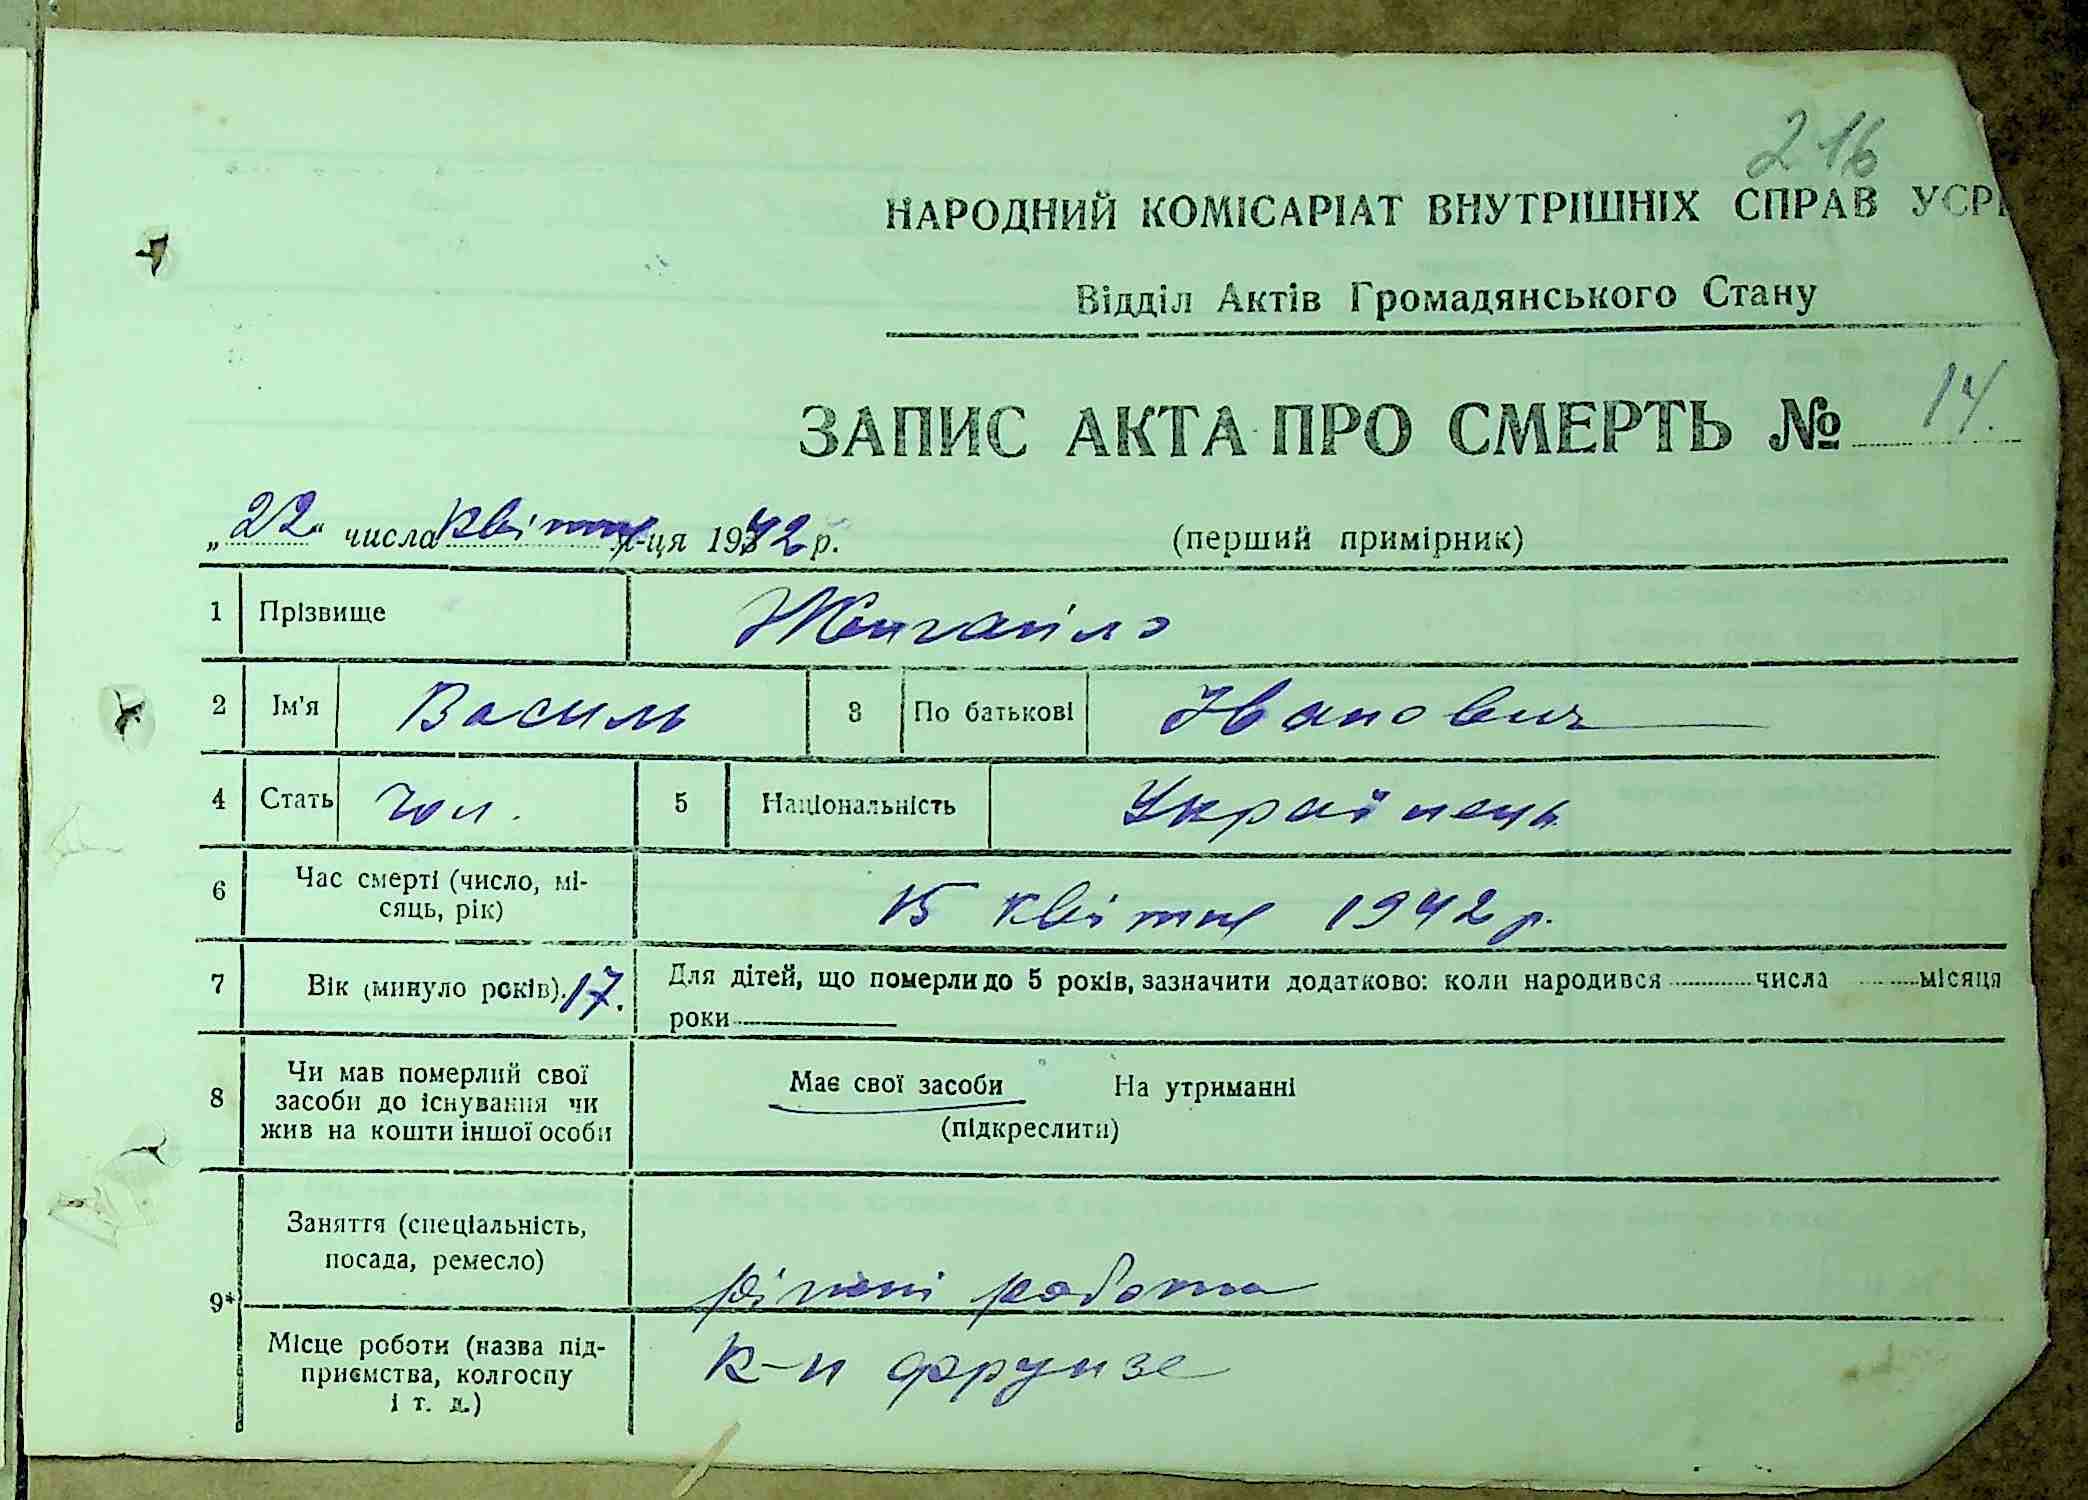 216
НАРОДНИЙ КОМІСАРІАТ ВНУТРІШНІХ СПРАВ УСР
Відділ Актів Громадянського Стану
ЗАПИС АКТА ПРО СМЕРТЬ № 14.
„22“ числа квітня м-ця 1942 р. (перший примірник)
1 Прізвище
2 Ім'я Василь 3 По батькові Іванович
4 Стать чол. 5 Національність Українець
6 Час смерті (число, мі-
сяць, рік) 15 квітня 1942 р.
7 Вік (минуло років). 17. Для дітей, що померли до 5 років, зазначити додатково: коли народився числа місяця
роки
8 Чи мав померлий свої
засоби до існування чи
жив на кошти іншої особи
Має свої засоби На утриманні
(підкреслити)
9* Заняття (спеціальність,
посада, ремесло) робота
Місце роботи (назва під-
приємства, колгоспу
і т. д.) к-п фрунзе